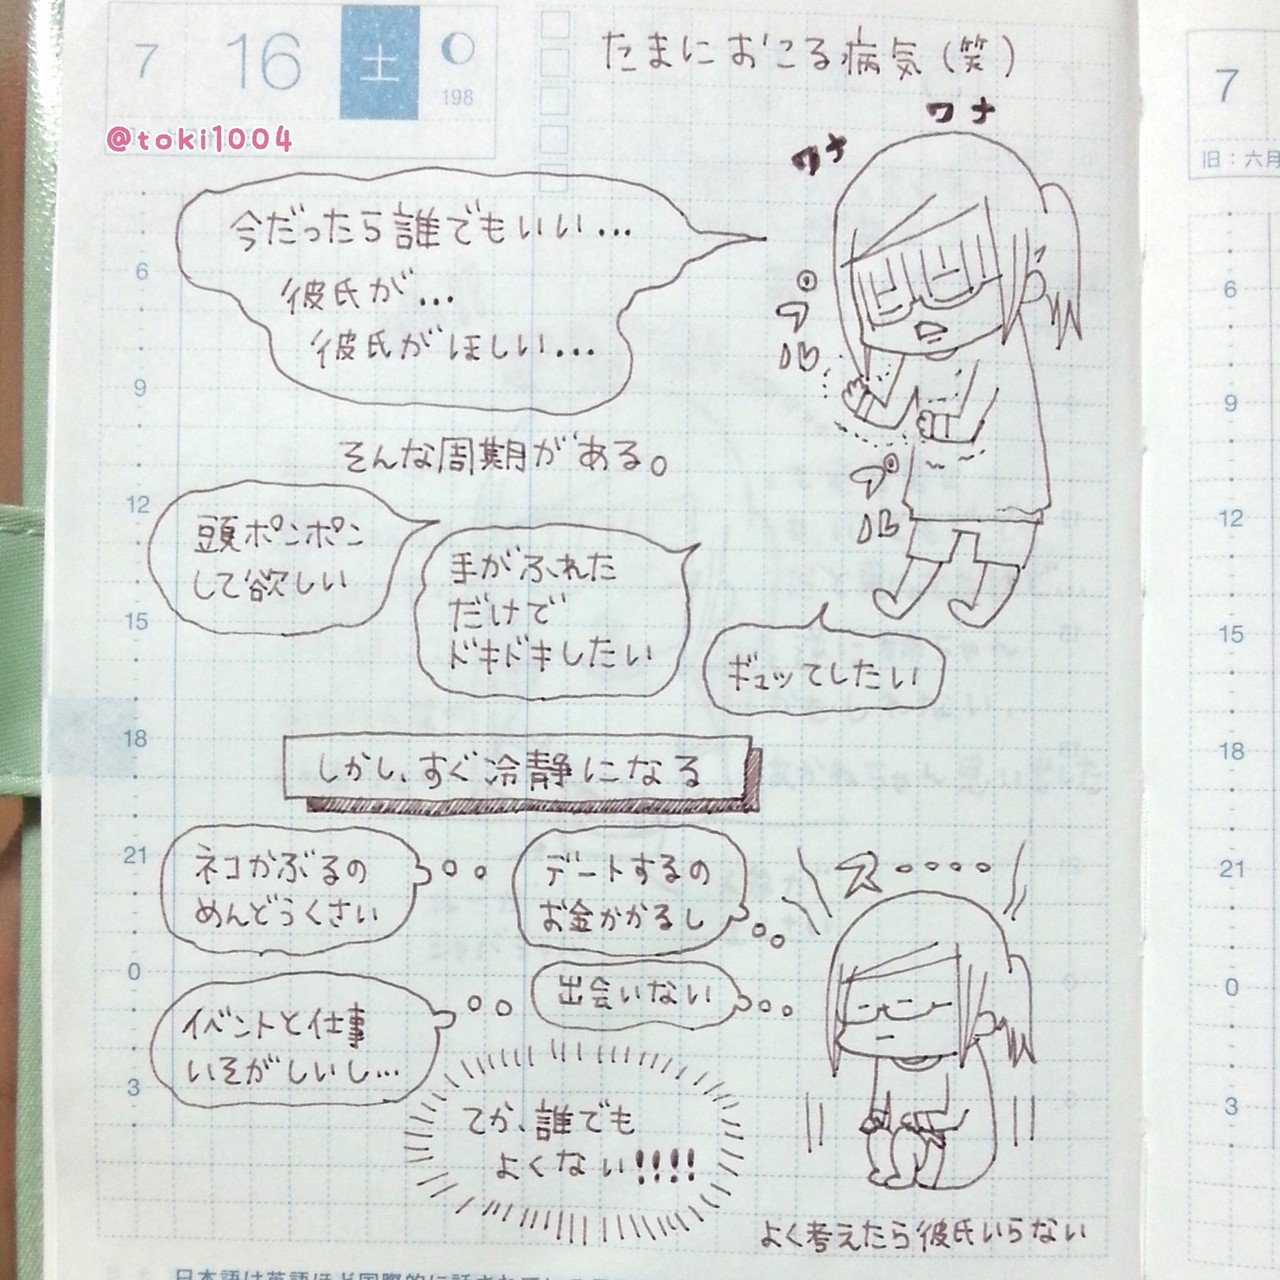 7 16 土
198
@toki1004
たまにおこる病気(笑)
ワナ
ワナ
今だったら誰でもいい...
彼氏が...
彼氏がほしい...
プル
プル
そんな周期がある。
頭ポンポン
して欲しい
手がふれた
だけで
ドキドキしたい
ギュッてしたい
しかし、すぐ冷静になる
ネコかぶるの
めんどうくさい
デートするの
お金かかるし
ス....
イベントと仕事
いそがしいし...
出会いない
てか、誰でも
よくない!!!!
よく考えたら彼氏いらない
6
9
12
15
18
21
0
3
7
旧:六月
6
9
12
15
18
21
0
3